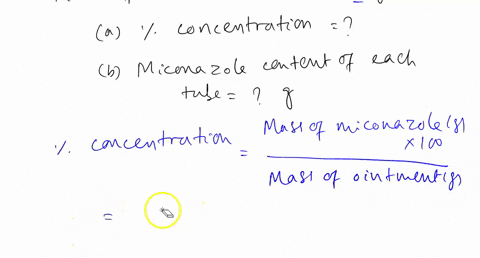 (a) % concentration = ?
(b) Miconazole content of each
tube = ? g
% concentration = Mass of miconazole(g) × 100
Mass of ointment(g)
=